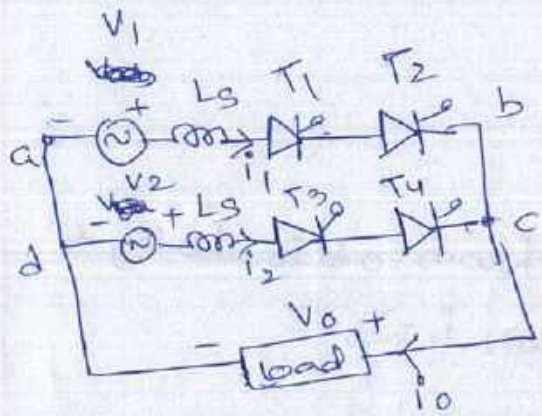 V1
- + Ls T1 T2 b
a i1
V2
- + Ls T3 T4 c
d i2
V0
- load +
i0